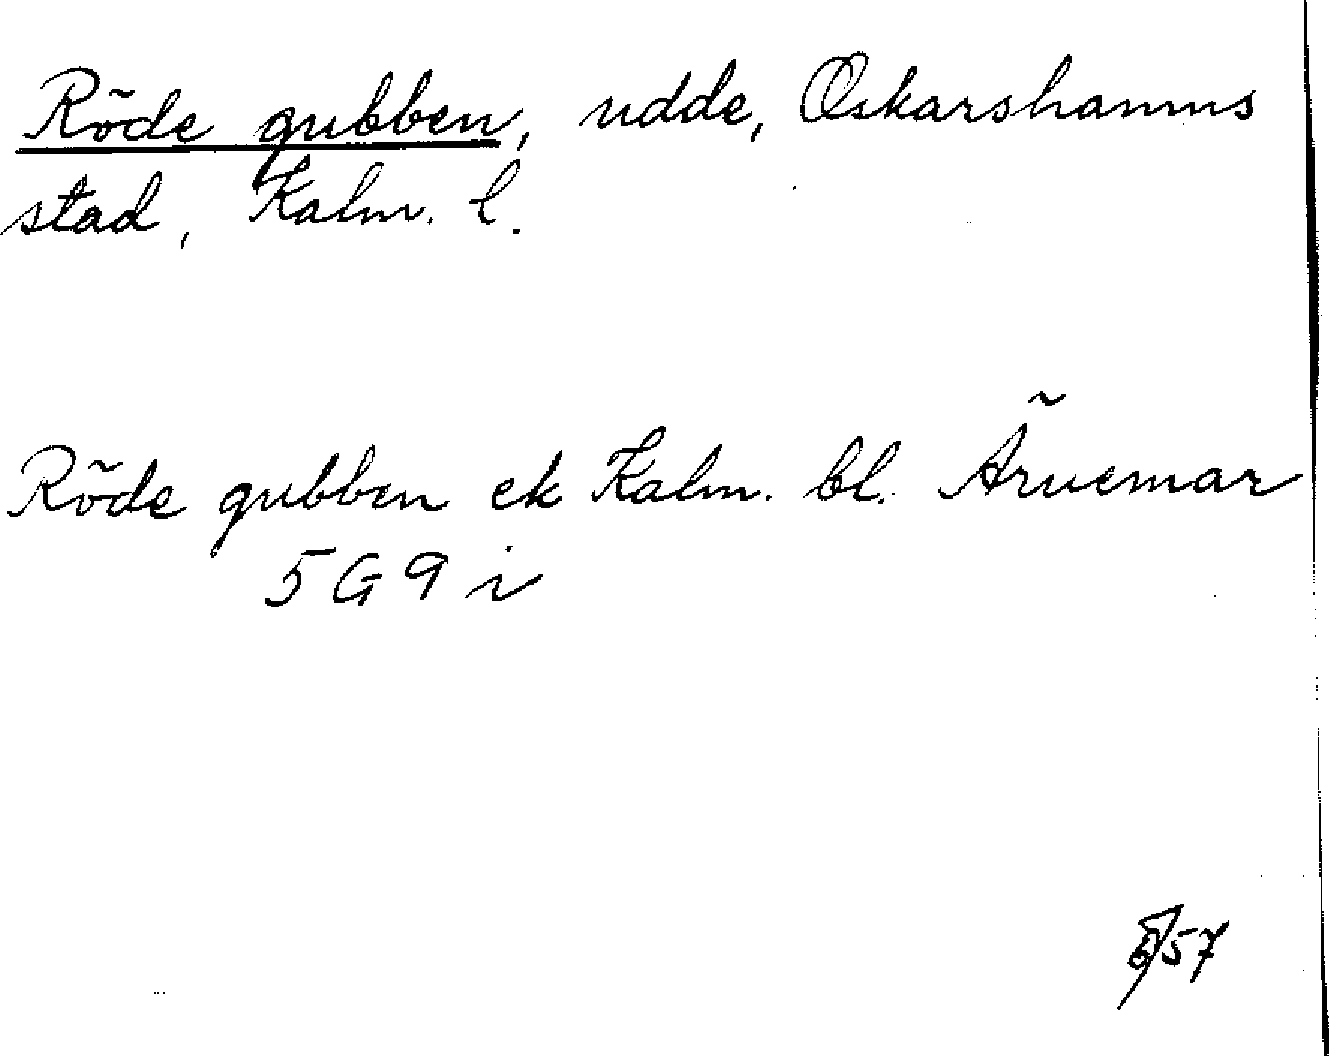 Röde gubben, udde, Oskarshamns
stad, Kalm. l.
Röde gubben ek Kalm. bl. Äruemar
5G9i